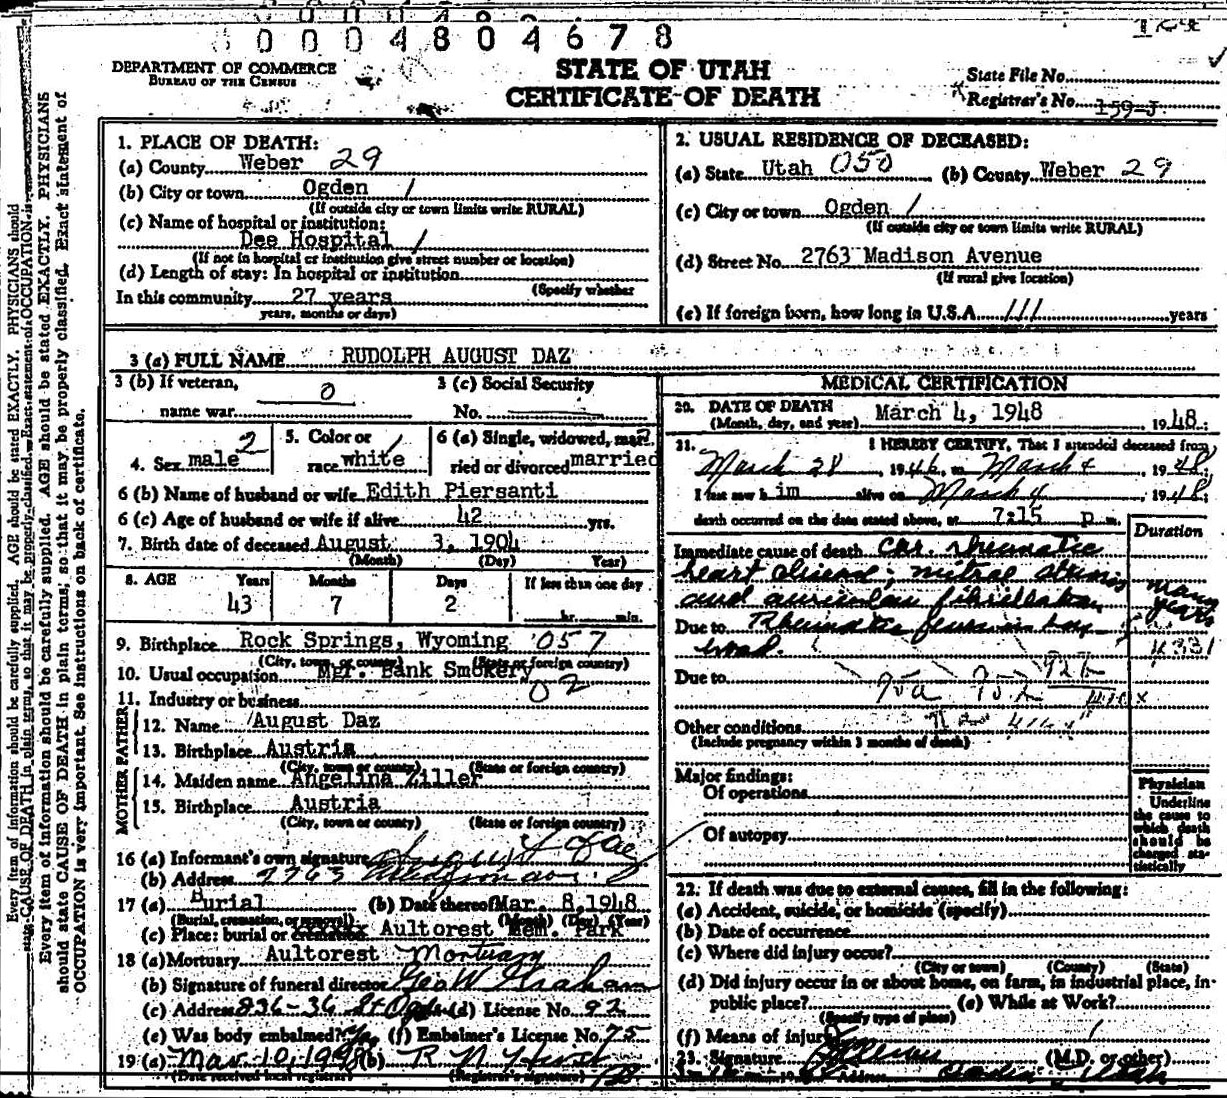 0 0 0 0 4 8 0 4 6 7 8
DEPARTMENT OF COMMERCE
BUREAU OF THE CENSUS
STATE OF UTAH
CERTIFICATE OF DEATH
State File No.
Registrar's No. 159-J
Every item of information should be carefully supplied. AGE should be stated EXACTLY. PHYSICIANS should state CAUSE OF DEATH in plain terms, so that it may be properly classified. Exact statement of OCCUPATION is
Every item of information should be carefully supplied. AGE should be stated EXACTLY. PHYSICIANS
should state CAUSE OF DEATH in plain terms, so that it may be properly classified. Exact statement of
OCCUPATION is very important. See instructions on back of certificate.
1. PLACE OF DEATH:
(a) County Weber 29
(b) City or town Ogden 1
(If outside city or town limits write RURAL)
(c) Name of hospital or institution:
Dee Hospital 1
(If not in hospital or institution give street number or location)
(d) Length of stay: In hospital or institution
(Specify whether
In this community 27 years
years, months or days)
2. USUAL RESIDENCE OF DECEASED:
(a) State Utah 050 (b) County Weber 29
(c) City or town Ogden 1
(If outside city or town limits write RURAL)
(d) Street No. 2763 Madison Avenue
(If rural give location)
(e) If foreign born, how long in U.S.A. 111 years
3 (a) FULL NAME RUDOLPH AUGUST DAZ
3 (b) If veteran,
name war 0
3 (c) Social Security
No.
4. Sex male 2
5. Color or
race white 1
6 (a) Single, widowed, mar-
ried or divorced married
6 (b) Name of husband or wife Edith Piersanti
6 (c) Age of husband or wife if alive 42 yrs.
7. Birth date of deceased August 3, 1904
(Month) (Day) Year)
8. AGE Years Months Days If less than one day
43 7 2 hr. min.
9. Birthplace Rock Springs, Wyoming 057
(City, town, or county) (State or foreign country)
10. Usual occupation Mgr. Bank Smokery
11. Industry or business 02
FATHER
12. Name August Daz
13. Birthplace Austria
(City, town or county) (State or foreign country)
MOTHER
14. Maiden name Angelina Ziller
15. Birthplace Austria
(City, town or county) (State or foreign country)
16 (a) Informant's own signature
(b) Address 2763
17 (a) Burial (b) Date thereof Mar. 8, 1948
(Burial, cremation, or removal) (Month) (Day) (Year)
(c) Place: burial or cremation Aultorest Mem. Park
18 (a) Mortuary Aultorest Mortuary
(b) Signature of funeral director Geo W Graham
(c) Address 836-36 St Ogden (d) License No. 92
(e) Was body embalmed? Yes (f) Embalmer's License No. 75
19 (a) Mar 10, 1948 (b) R N
(Date received local registrar) (Registrar's signature)
MEDICAL CERTIFICATION
20. DATE OF DEATH March 4, 1948 1948;
(Month, day, and year)
21. I HEREBY CERTIFY, That I attended deceased from
March 28, 1946, to March 4 1948;
I last saw h im alive on March 4 1948;
death occurred on the date stated above, at 7:15 p m.
Duration
Immediate cause of death Chr. rheumatic
heart disease; mitral stenosis
and auricular fibrillation many years
Due to Rheumatic fever in boy-
hood. 4331
Due to 95a 95.2 92b
410x
Other conditions 416x
(Include pregnancy within 3 months of death)
Major findings:
Of operations
Of autopsy
Physician
Underline
the cause to
which death
should be
charged sta-
tistically
22. If death was due to external causes, fill in the following:
(a) Accident, suicide, or homicide (specify)
(b) Date of occurrence
(c) Where did injury occur?
(City or town) (County) (State)
(d) Did injury occur in or about home, on farm, in industrial place, in
public place? (e) While at Work?
(Specify type of place)
(f) Means of injury
23. Signature (M.D. or other)
Address Ogden, Utah